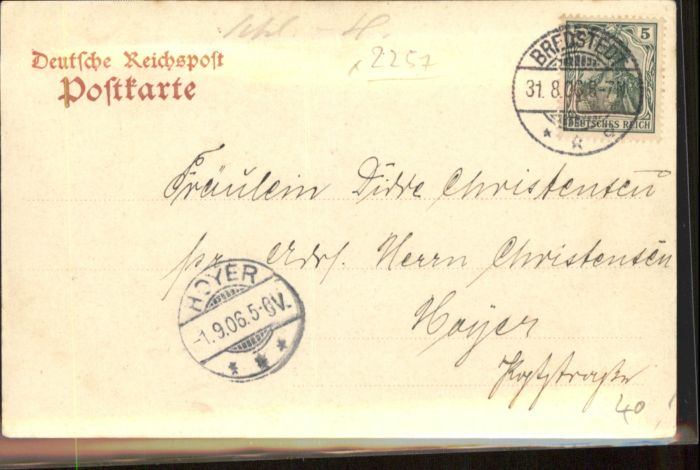 2257
Deutsche Reichspost
Postkarte
BREDSTEDT
31.8.06.5-7N
5
DEUTSCHES REICH
Fräulein Didre Christensen
pr. Adrs. Herrn Christensen
Hoyer
HOYER
-1.9.06.5-6V.
40